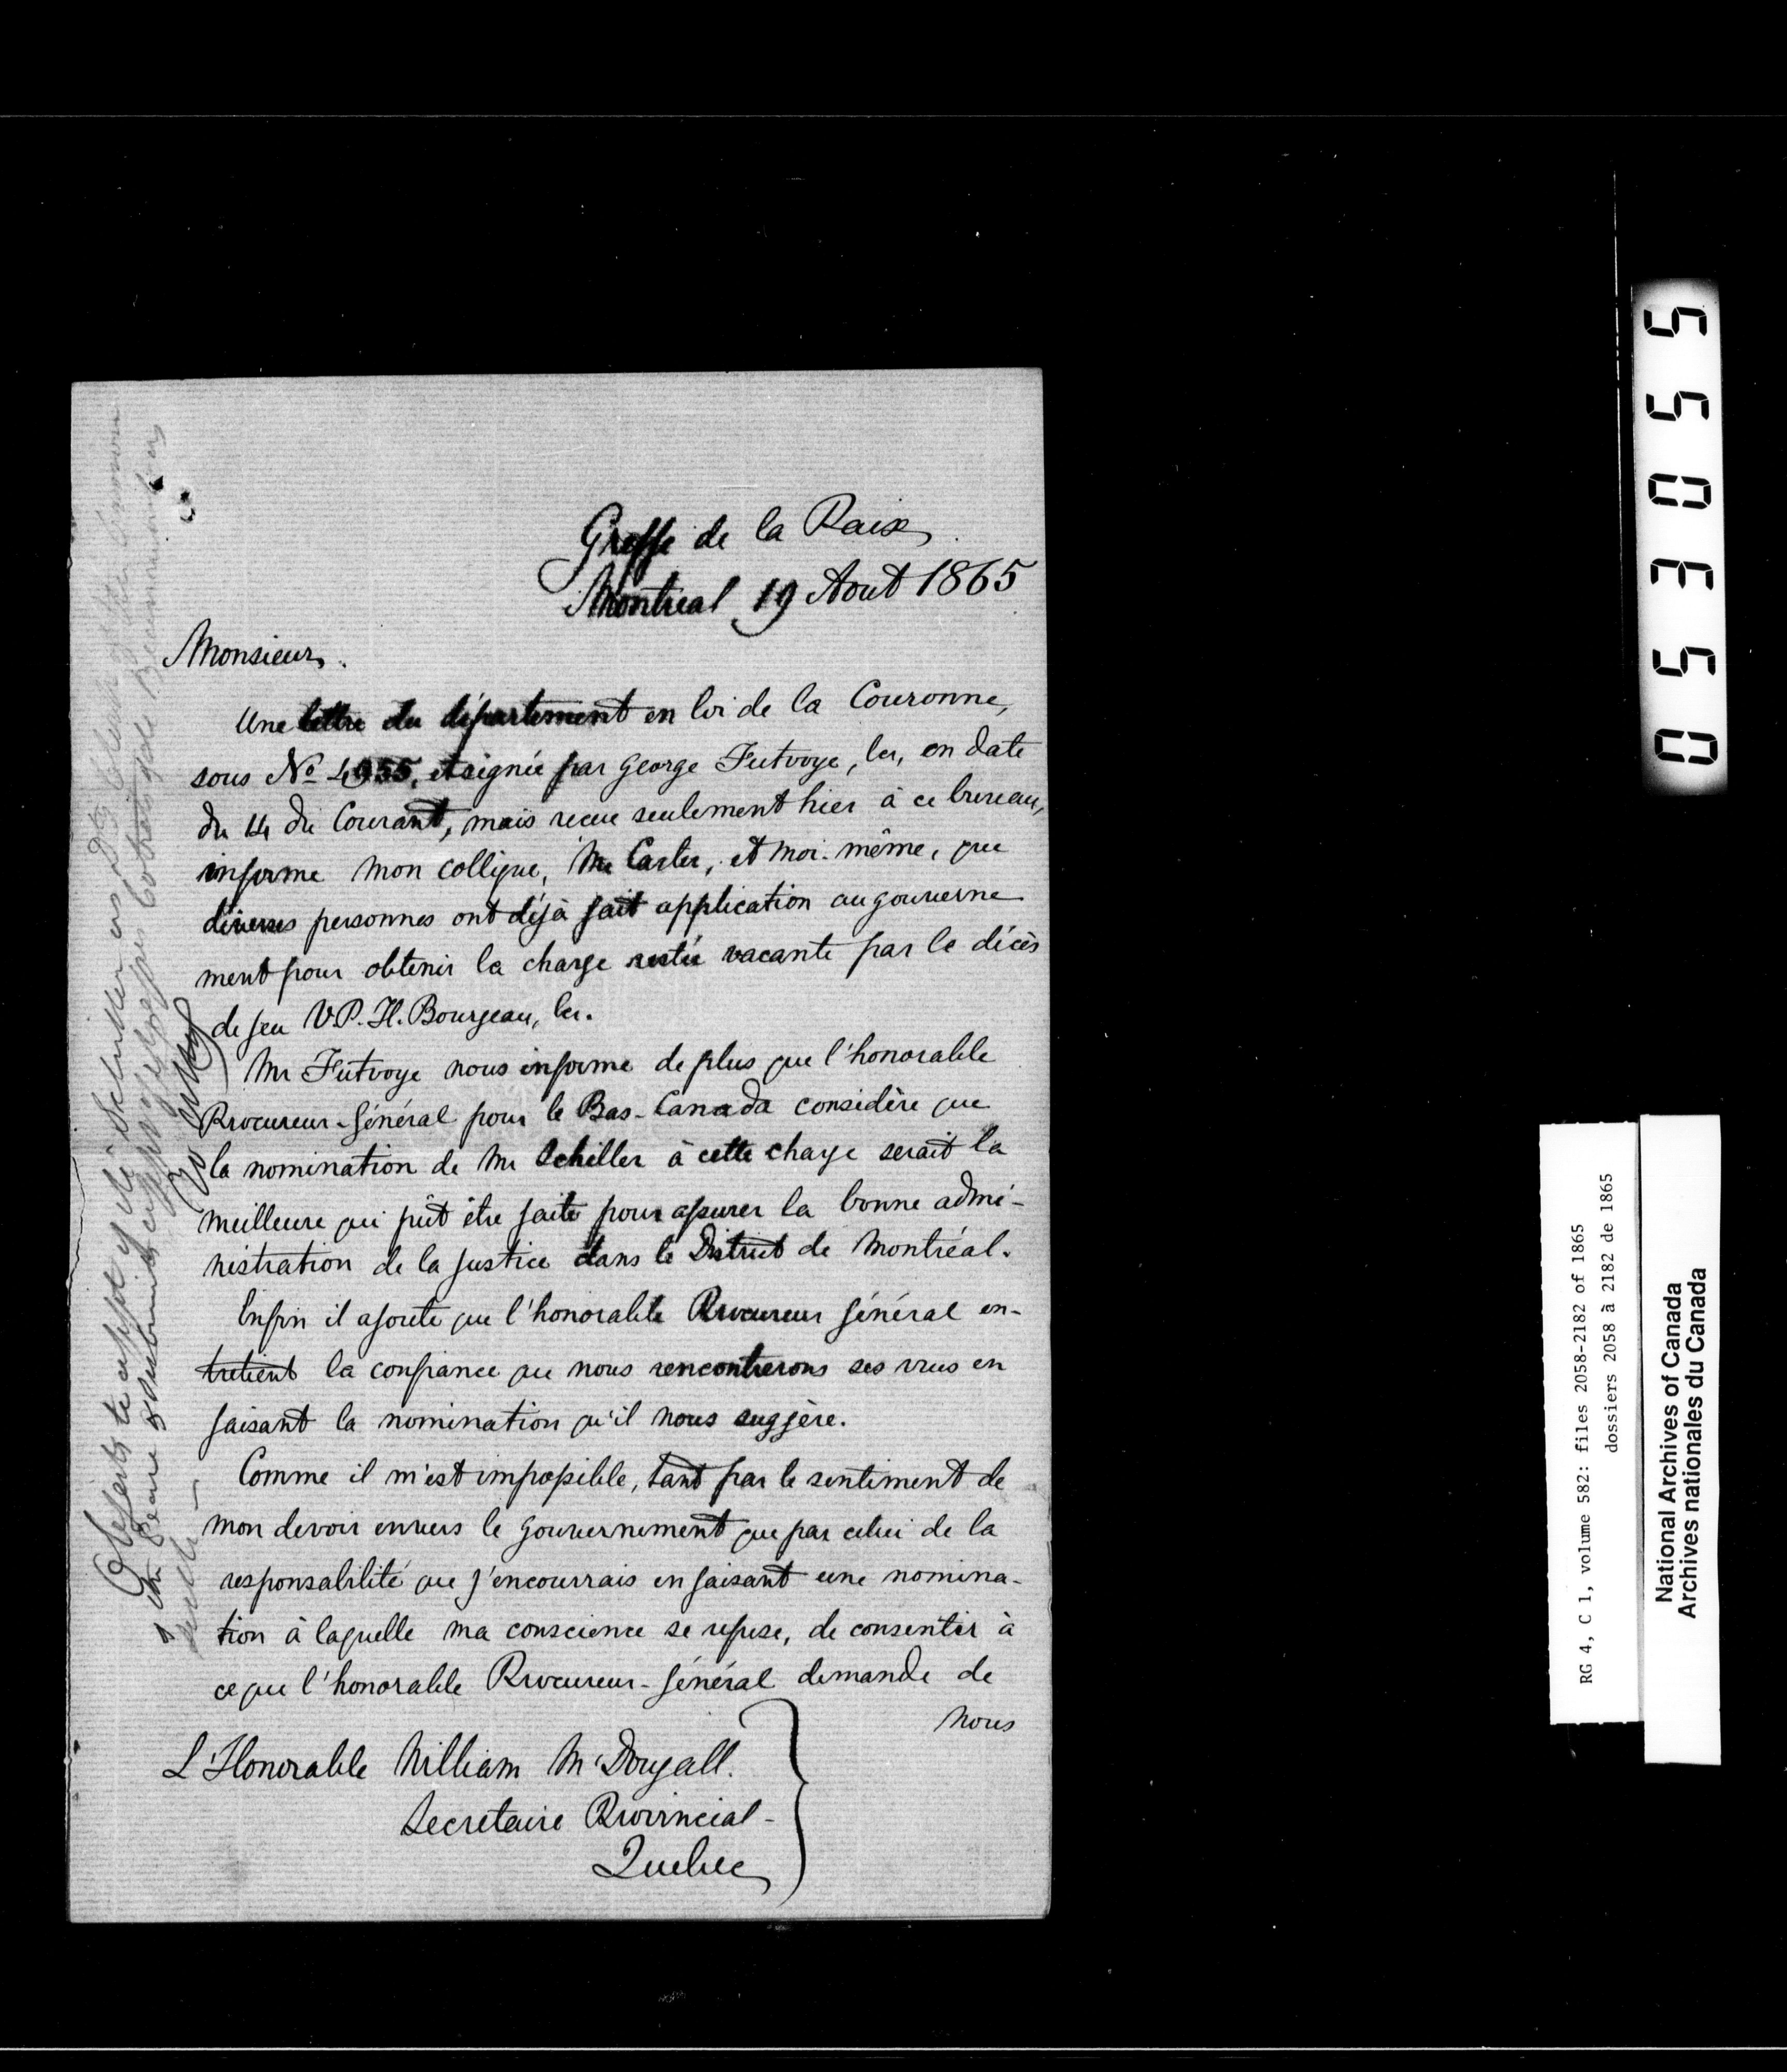 Greffe de la Paix
Montreal 19 Aout 1865
Monsieur.
Une lettre du département en loi de la Couronne,
sous No 4955, et signée par George Futvoye, Ecr, en date
du 14 du Courant, mais recue seulement hier à ce bureau,
informe mon collègue, Mr Carter, et moi-même, que
diverses personnes ont déjà fait application au gouverne
ment pour obtenir la charge restée vacante par le décès
de feu V.P.H. Bourgeau, Ecr.
Mr Futvoye nous informe de plus que l'honorable
Procureur-Général pour le Bas-Canada considère que
la nomination de Mr Schiller à cette charge serait la
meilleure qui pût être faite pour assurer la bonne admi-
nistration de la justice dans le District de Montréal.
Enfin il ajoute que l'honorable Procureur Général en-
tretient la confiance que nous rencontrerons ses vues en
faisant la nomination qu'il nous suggère.
Comme il m'est impossible, tant par le sentiment de
mon devoir envers le gouvernement que par celui de la
responsabilité que j'encourrais en faisant une nomina-
tion à laquelle ma conscience se refuse, de consentir à
ce que l'honorable Procureur-Général demande de
nous
L'Honorable William McDougall.
Secretaire Provincial-
Quebec
05305 5
RG 4, C 1, volume 582: files 2058-2182 of 1865
dossiers 2058 à 2182 de 1865
National Archives of Canada
Archives nationales du Canada